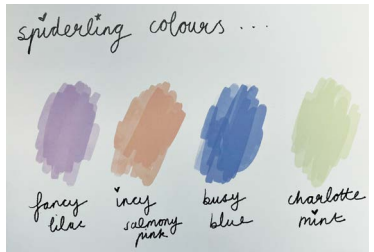 spiderling colours ...
fancy
lilac
incy
salmony
pink
busy
blue
charlotte
mint